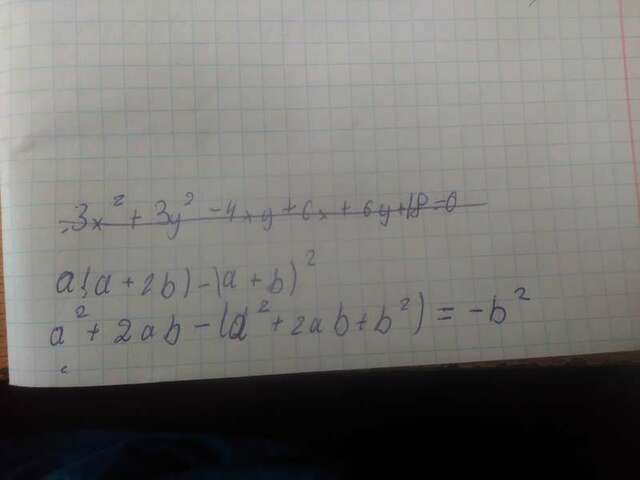 3x² + 3y² - 4xy + 6x + 6y + 18 = 0
a(a + 2b) - (a + b)²
a² + 2ab - (a² + 2ab + b²) = -b²